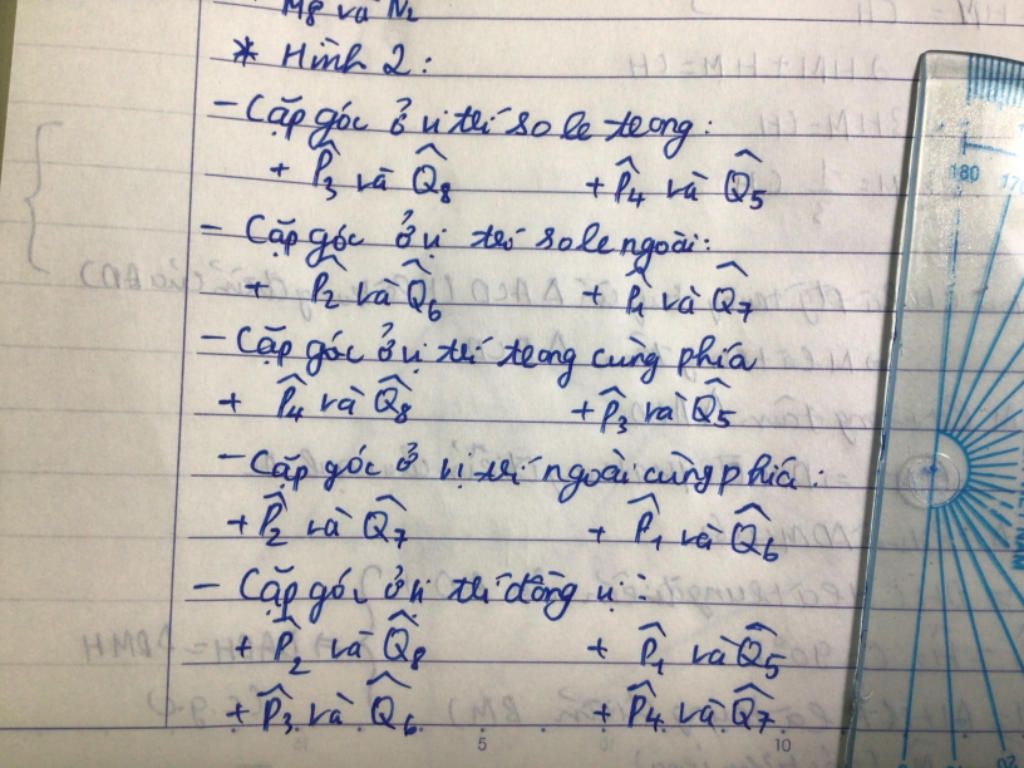 M8 và N2
* Hình 2:
- Cặp góc ở vị trí so le trong:
+ P̂3 và Q̂8 + P̂4 và Q̂5
- Cặp góc ở vị trí so le ngoài:
+ P̂2 và Q̂6 + P̂1 và Q̂7
- Cặp góc ở vị trí trong cùng phía
+ P̂4 và Q̂8 + P̂3 và Q̂5
- Cặp góc ở vị trí ngoài cùng phía:
+ P̂2 và Q̂7 + P̂1 và Q̂6
- Cặp góc ở vị trí đồng vị:
+ P̂2 và Q̂8 + P̂1 và Q̂5
+ P̂3 và Q̂6 + P̂4 và Q̂7
180
5 10